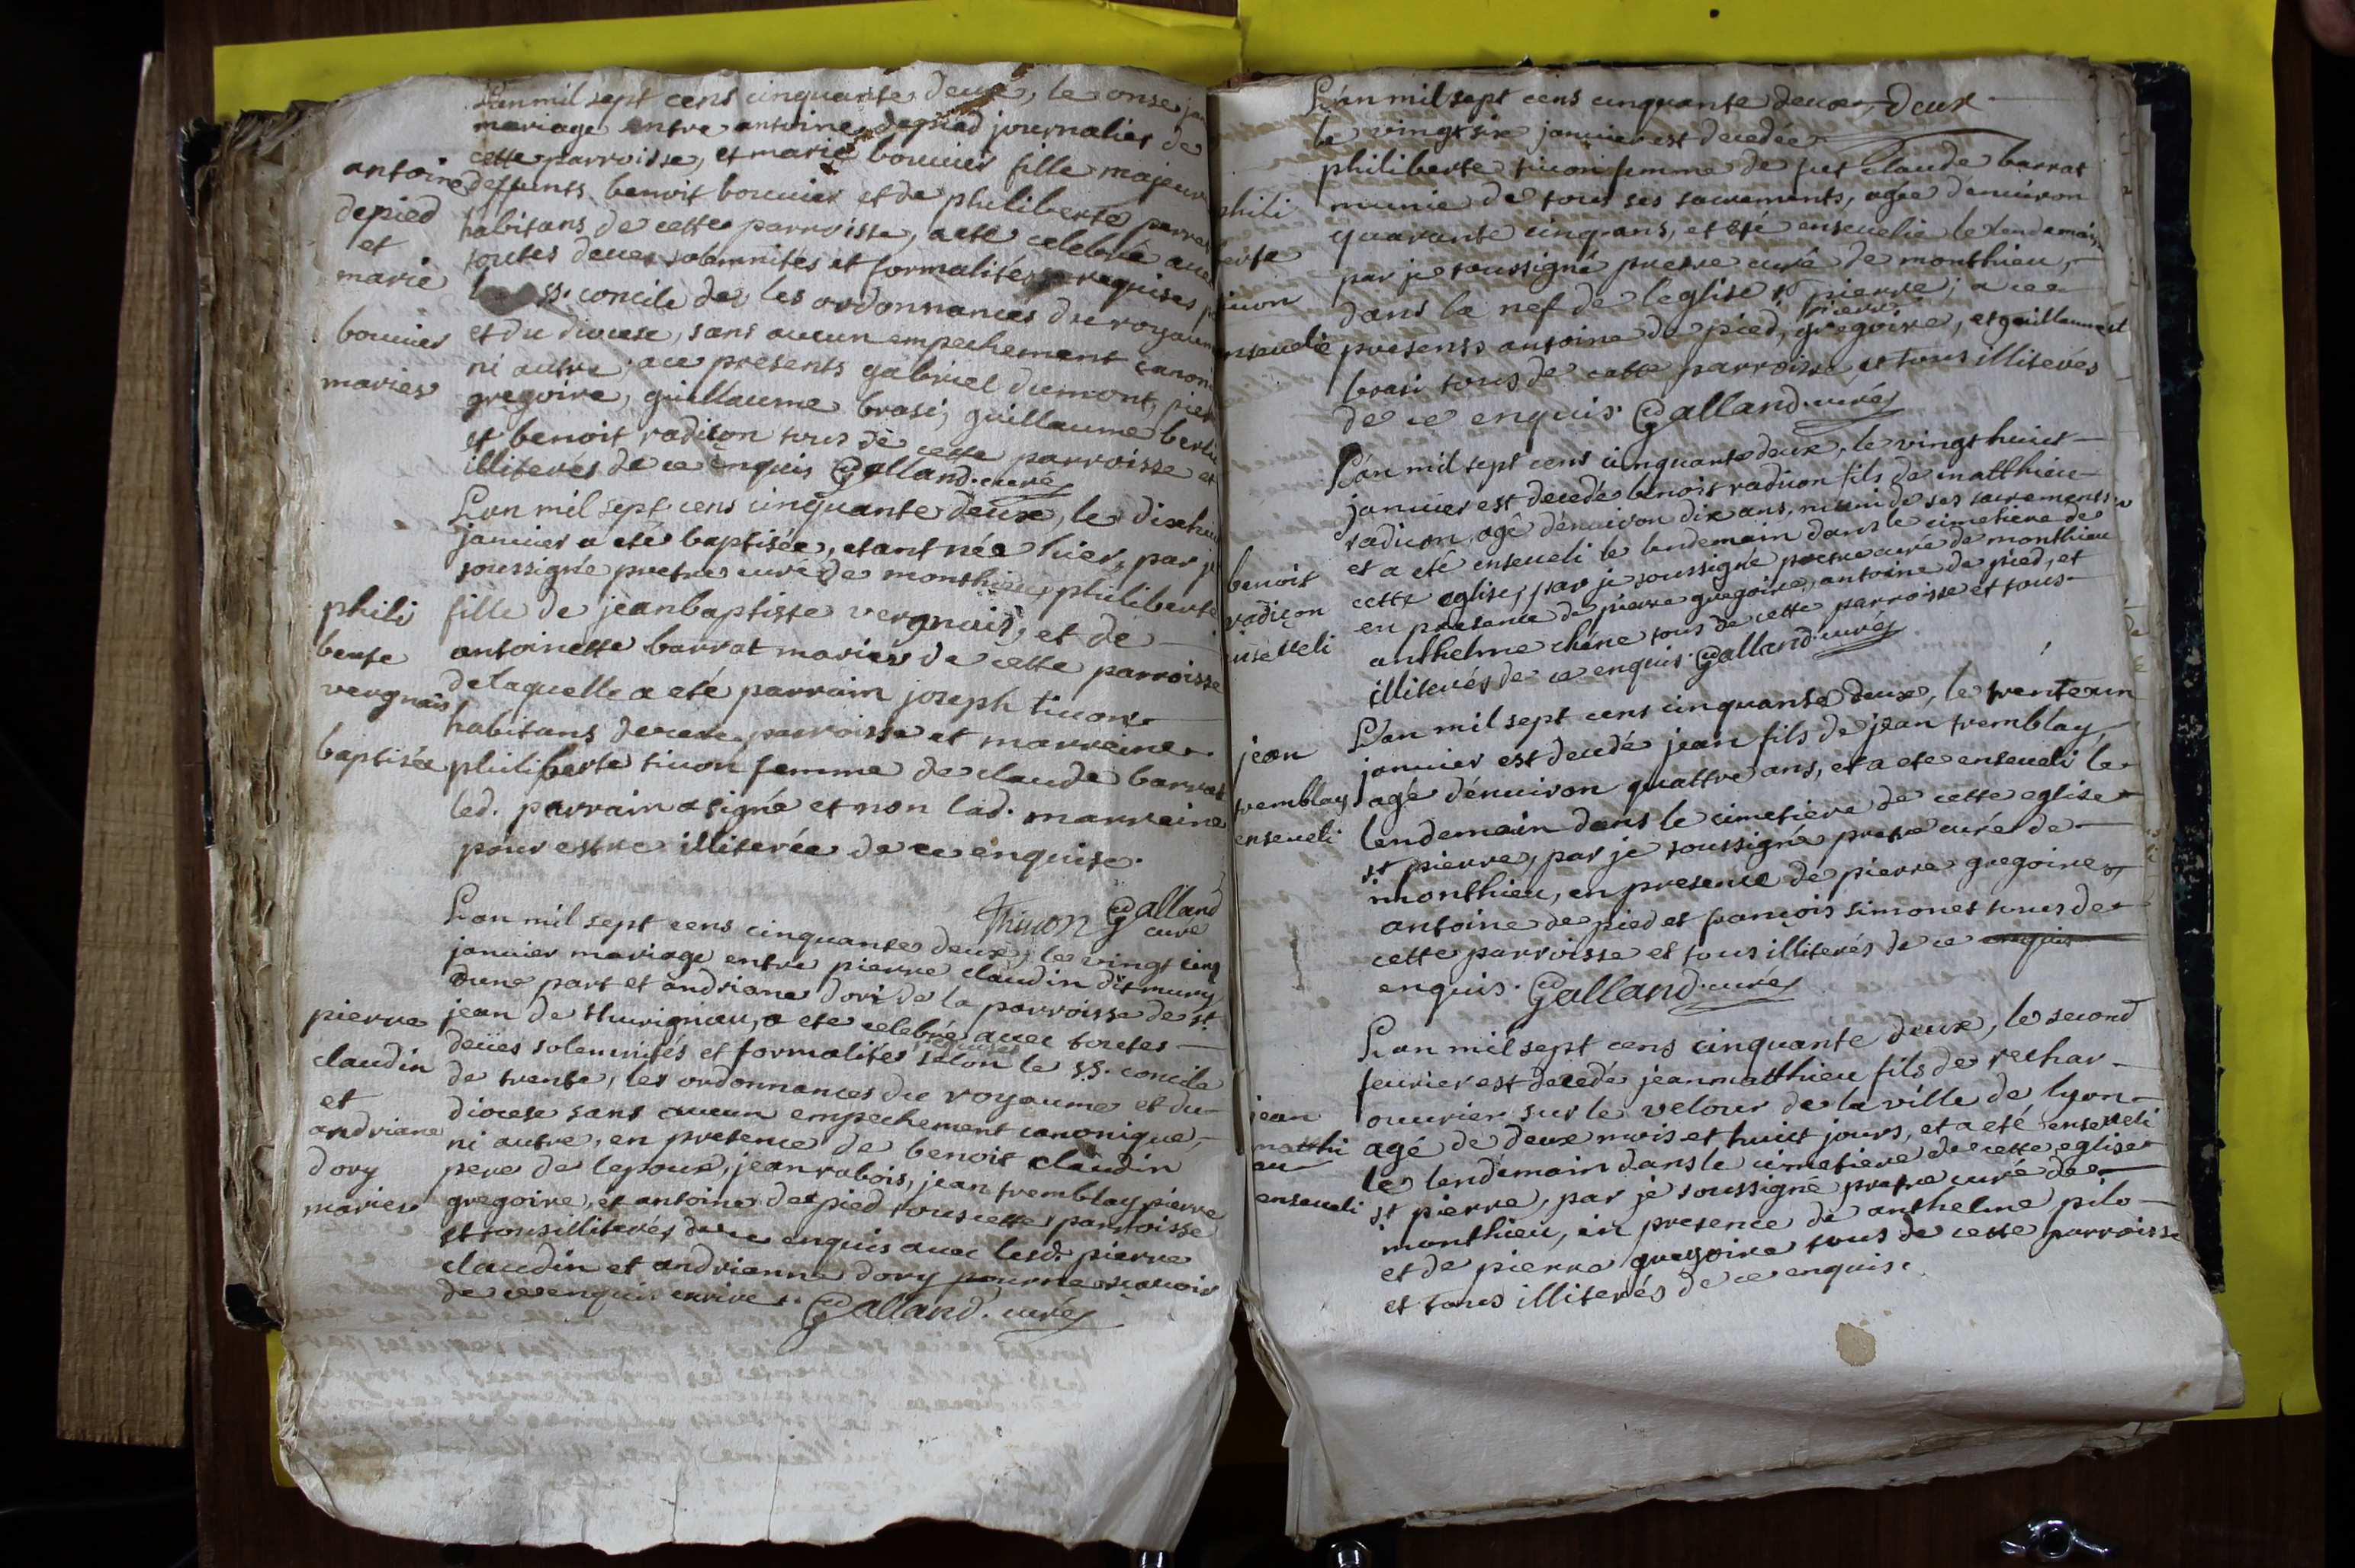 L'an mil sept cens cinquante deux, le onse
mariage entre antoine depied journalier de
cette parroisse, et marie bouuier fille majeure
antoine deffunts benoit bouuier et de philiberte
depied habitans de cette parroisse, a eté celebré
et toutes deues solemnités et formalités requises
marie ss. concile de les ordonnances du royaume
bouuier et du diocese, sans aucun empechement
ni autre, ace presents gabriel dumont,
mariés gregoire, guillaume brosi, guillaume
et benoit radicon tous de cette parroisse et
illiterés de ce enquis Galland. curé
L'an mil sept cens cinquante deux, le dixhuit
januier a eté baptisée, etant née hier, par je
soussigné pretre curé de monthieu, philiberte
phili fille de jeanbaptiste vergnais, et de
berte antoinette barrat mariés de cette parroisse
vergnais delaquelle a eté parrain joseph ticon
habitans de cette parroisse et marreine
baptisée philiberte ticon femme de claude barrat
led. parrain a signé et non lad. marreine
pour estre illiterée de ce enquise.
Thicon Galland
curé
L'an mil sept cens cinquante deux, le vingt cinq
januier mariage entre pierre claudin dit mury
dune part et andriane dori de la parroisse de st
pierre jean de thurigneu, a ete celebré auec toutes
deües solemnités et formalités requises selon le ss. concile
claudin de trente, les ordonnances du royaume et du
et diocese sans aucun empechement canonique,
andriane ni autre, en presence de benoit claudin
dory pere de lepoux, jean rabois, jean tremblay, pierre
mariés gregoire, et antoine de pied tous cette parroisse
et tous illiterés de ce enquis auec lesd. pierre
claudin et andrienne dory pour ne sçauoir
de ce enquis ecrire. Galland. curé

L'an mil sept cens cinquante deux, deux
le vingt six januier est decedée
philiberte ticon femme de feu claude barrat
phili munie de tous ses sacrements, agée d'enuiron
quarante cinq ans, et eté enseuelie le lendemain
berte par je soussigné pretre curé de monthieu,
ticon dans la nef de l'eglise st pierre; a ce
enseuelie presents antoine de pied, pierre gregoire, et guillaume
brasi tous de cette parroisse et tous illiterés
de ce enquis. Galland. curé
L'an mil sept cens cinquante deux, le vingt huict
januier est decedé benoit radicon fils de matthieu
radicon, agé d'enuiron dix ans, muni de ses sacrements,
et a eté enseueli le lendemain dans le cimetiere de
benoit cette eglise, par je soussigné pretre curé de monthieu
radicon en presence de pierre gregoire, antoine de pied, et
enseueli anthelme chéne tous de cette parroisse et tous
illiterés de ce enquis. Galland. curé
L'an mil sept cens cinquante deux, le trente un
jean januier est decedé jean fils de jean tremblay,
tremblay agé d'enuiron quattre ans, et a ete enseueli le
enseueli lendemain dans le cimetiere de cette eglise
st pierre, par je soussigné pretre curé de
monthieu, en presence de pierre gregoire,
antoine de pied et françois simonet tous de
cette parroisse et tous illiterés de ce enquis
enquis. Galland. curé
L'an mil sept cens cinquante deux, le second
feurier est decedé jeanmatthieu fils de rechar
jean ouurier sur le velour de la ville de lyon
matthi agé de deux mois et huict jours, et a eté enseueli
eu le lendemain dans le cimetiere de cette eglise
enseueli st pierre, par je soussigné pretre curé de
monthieu, en presence de anthelme pilo
et de pierre gregoire tous de cette parroisse
et tous illiterés de ce enquis.